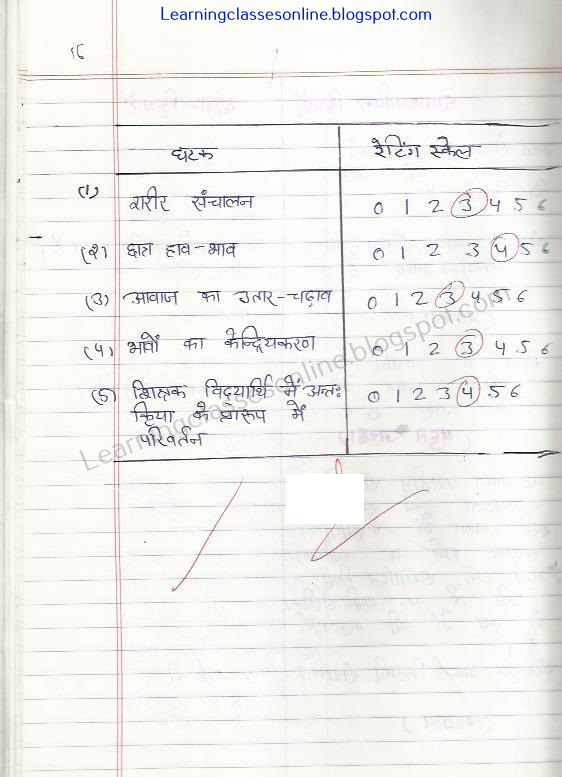 Learningclassesonline.blogspot.com
16
घटक रेटिंग स्केल
(1) शरीर संचालन 0 1 2 3 4 5 6
(२) हाव-भाव 0 1 2 3 4 5 6
(3) आवाज का उतार-चढ़ाव 0 1 2 3 4 5 6
(4) भावों का केन्द्रियकरण 0 1 2 3 4 5 6
(5) शिक्षक विद्यार्थि में अन्तः 0 1 2 3 4 5 6
क्रिया के प्रारूप में
परिवर्तन
Learningclassesonline.blogspot.com